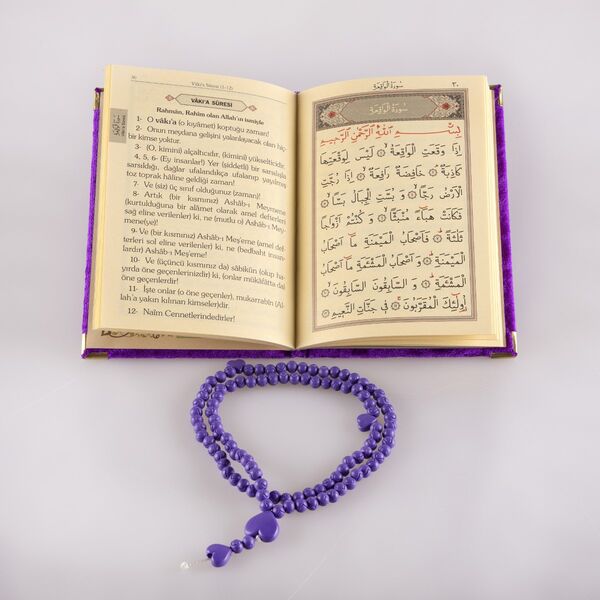 30
Vâkı'a Sûresi (1-12)
VÂKI'A SÛRESİ
Rahmân, Rahîm olan Allah'ın ismiyle
1- O vâkı'a (o kıyâmet) koptuğu zaman!
2- Onun meydana gelişini yalanlayacak olan hiç-
bir kimse yoktur.
3- (O, kimini) alçaltıcıdır, (kimini) yükselticidir.
4, 5, 6- (Ey insanlar!) Yer (şiddetli) bir sarsılışla
sarsıldığı, dağlar ufalandıkça ufalanıp yayılmış
toz toprak hâline geldiği zaman!
7- Ve (siz) üç sınıf olduğunuz (zaman)!
8- Artık (bir kısmınız) Ashâb-ı Meymene
(kurtulduğuna bir alâmet olarak amel defterleri
sağ eline verilenler) ki, ne (mutlu o) Ashâb-ı Mey-
mene(ye)!
9- Ve (bir kısmınız) Ashâb-ı Meş'eme (amel def-
terleri sol eline verilenler) ki, ne (bedbaht insan-
lardır) Ashâb-ı Meş'eme!
10- Ve (üçüncü kısmınız da) sâbikûn (olup ha-
yırda öne geçenlerinizdir) ki, (onlar mükâfâtta da)
öne geçenlerdir!
11- İşte onlar (o öne geçenler), mukarrabîn (Al-
lah'a yakın kılınan kimseler)dir.
12- Naîm Cennetlerindedirler!
سُورَةُ الْوَاقِعَةِ
٣٠
سُورَةُ الْوَاقِعَةِ
بِسْمِ اللّٰهِ الرَّحْمٰنِ الرَّحِيمِ
اِذَا وَقَعَتِ الْوَاقِعَةُ ۞ لَيْسَ لِوَقْعَتِهَا
كَاذِبَةٌ ۞ خَافِضَةٌ رَافِعَةٌ ۞ اِذَا رُجَّتِ
الْاَرْضُ رَجًّا ۞ وَ بُسَّتِ الْجِبَالُ بَسًّا ۞
فَكَانَتْ هَبَٓاءً مُنْبَثًّا ۞ وَ كُنْتُمْ اَزْوَاجًا
ثَلٰثَةً ۞ فَاَصْحَابُ الْمَيْمَنَةِ مَٓا اَصْحَابُ
الْمَيْمَنَةِ ۞ وَ اَصْحَابُ الْمَشْئَمَةِ مَٓا اَصْحَابُ
الْمَشْئَمَةِ ۞ وَ السَّابِقُونَ السَّابِقُونَ ۞
اُولٰٓئِكَ الْمُقَرَّبُونَ ۞ فِي جَنَّاتِ النَّعِيمِ ۞